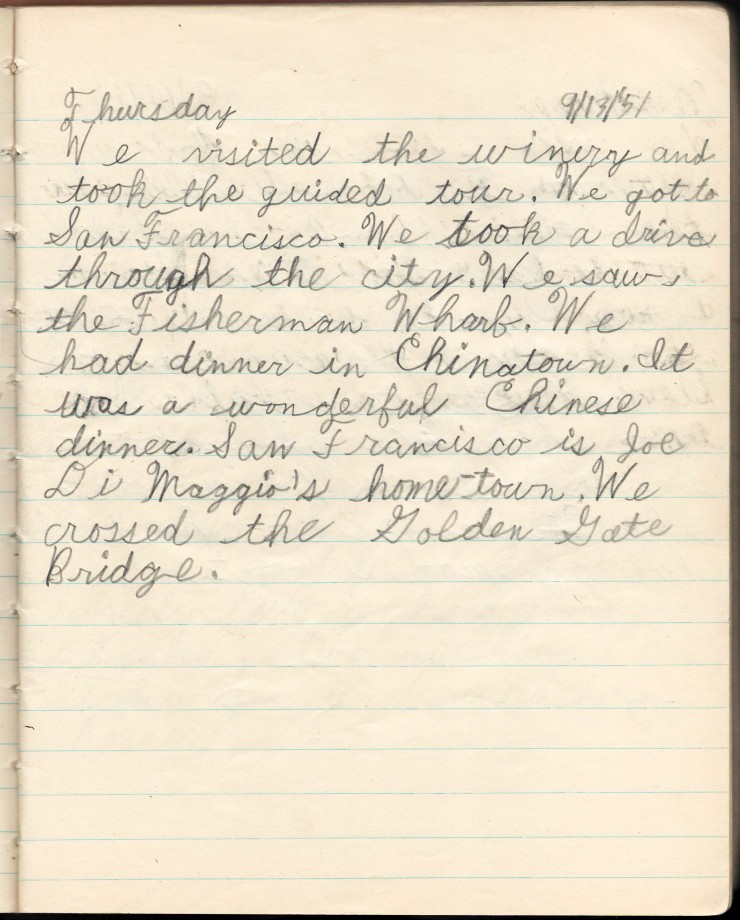 Thursday 9/13/51
We visited the winery and
took the guided tour. We got to
San Francisco. We took a drive
through the city. We saw
the Fisherman Wharf. We
had dinner in Chinatown. It
was a wonderful Chinese
dinner. San Francisco is Joe
Di Maggio's home-town. We
crossed the Golden Gate
Bridge.